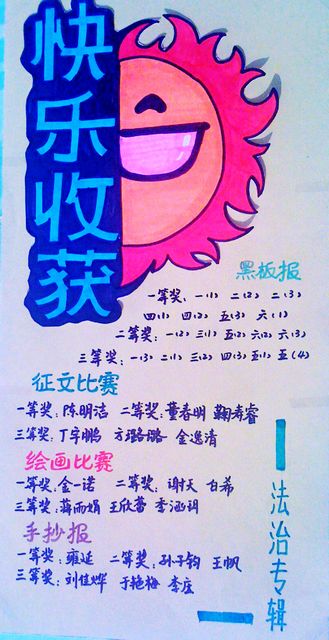 快乐收获
黑板报
一等奖：一(1) 二(2) 二(3)
四(1) 四(2) 五(3) 六(1)
二等奖：一(2) 三(1) 五(2) 六(2) 六(3)
三等奖：一(3) 二(1) 三(2) 四(3) 五(1) 五(4)
征文比赛
一等奖：陈明洁 二等奖：董春明 鞠春睿
三等奖：丁宇鹏 方璐璐 金逸清
绘画比赛
一等奖：金一诺 二等奖：谢天 甘希
三等奖：蒋雨娟 王欣蕾 李涵润
手抄报
一等奖：雍延 二等奖：孙子钧 王帆
三等奖：刘佳烨 于艳梅 李庄
法治专辑